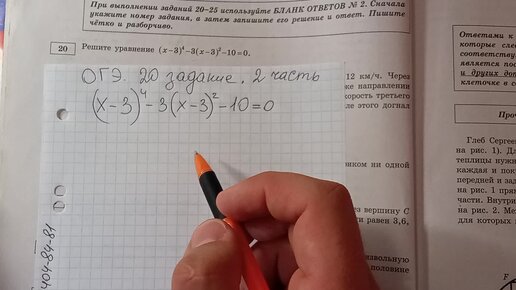 При выполнении заданий 20–25 используйте БЛАНК ОТВЕТОВ № 2. Сначала
укажите номер задания, а затем запишите его решение и ответ. Пишите
чётко и разборчиво.
20
Решите уравнение (x−3)⁴−3(x−3)²−10=0.
ОГЭ. 20 задание. 2 часть
(x−3)⁴−3(x−3)²−10=0
12 км/ч. Через
же направлении
корость третьего
ле этого догнал
ником ни одной
рез вершину C
ти равен 3,6,
извольную
половине
404-84-81
Ответами к
которые след
соответствую
является посл
и других допо
клеточке в со
Проч
Глеб Сергее
на рис. 1). Дл
теплицы нужн
каждая и пок
передней и зад
на рис. 1 прям
части. Внутри
на рис. 2. Меж
для которых
F